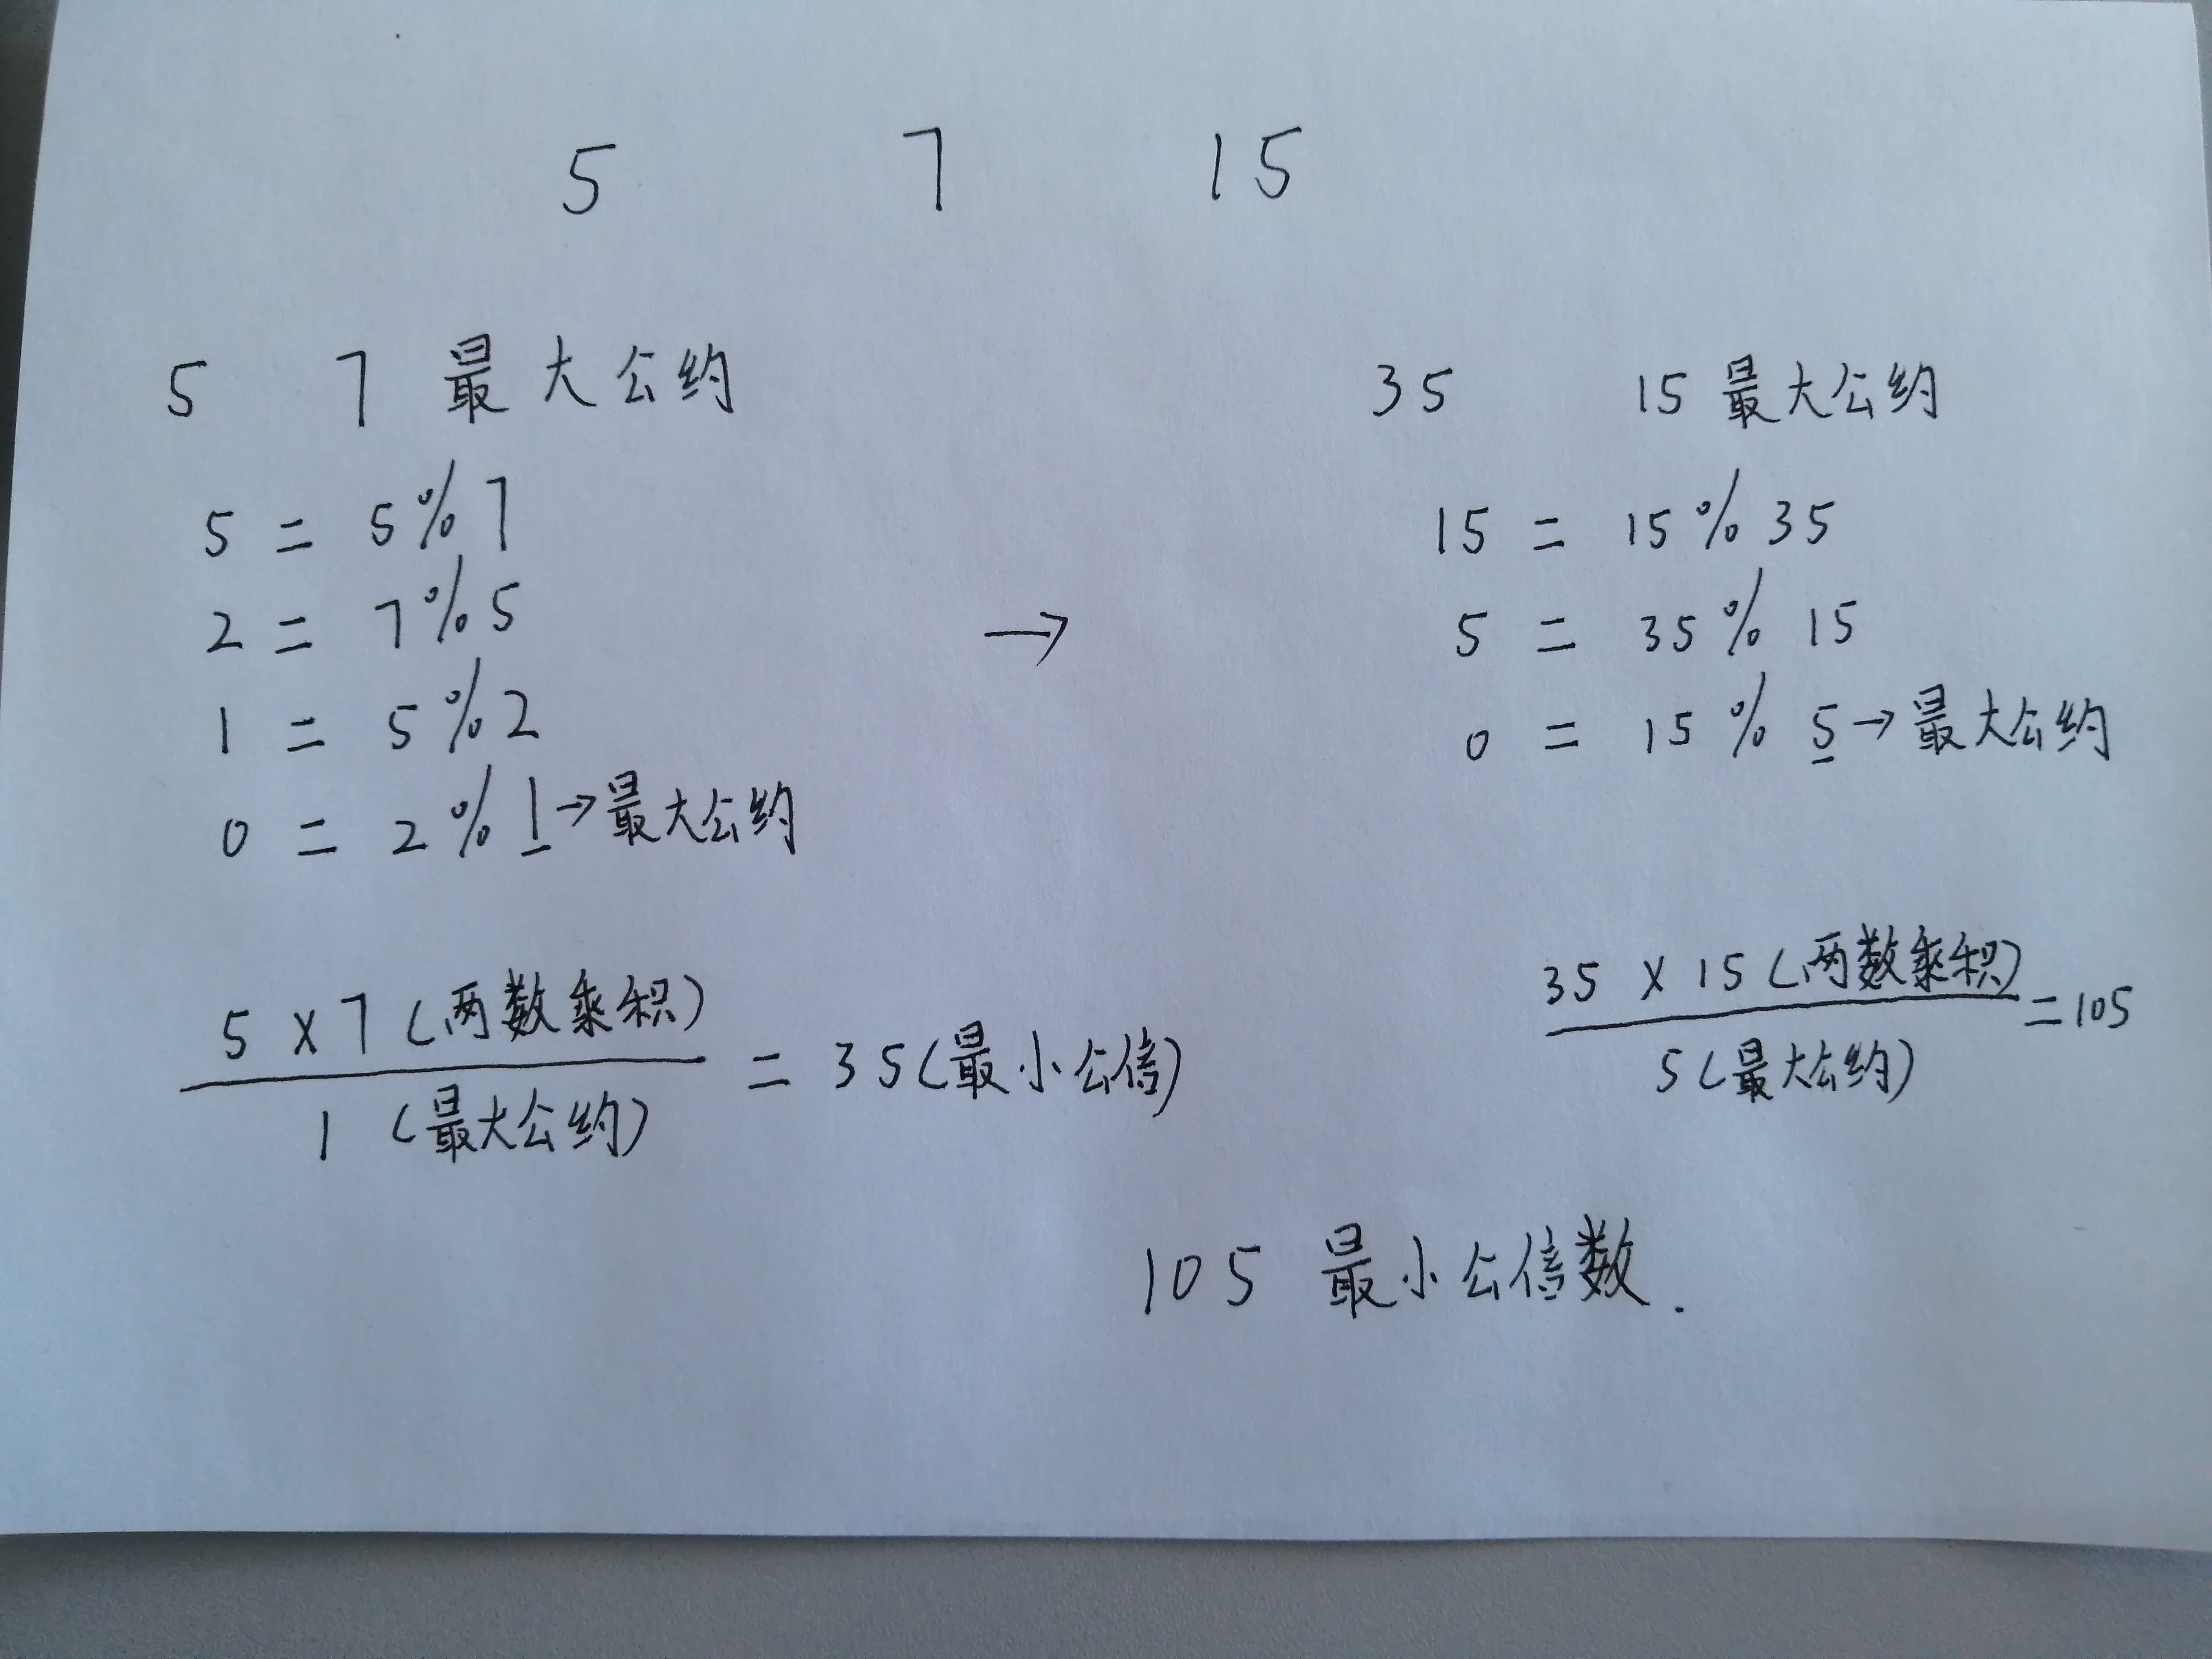 5 7 15
5 7 最大公约
5 = 5%7
2 = 7%5
1 = 5%2
0 = 2%1→最大公约
5×7(两数乘积)
1 (最大公约)
= 35(最小公倍)
→
35 15 最大公约
15 = 15%35
5 = 35%15
0 = 15%5→最大公约
35×15(两数乘积)
5(最大公约)
=105
105 最小公倍数.